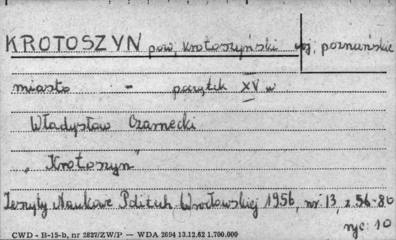 KROTOSZYN pow. krotoszyński woj. poznańskie
miasto - początek XV w
Władysław Czarnecki
"Krotoszyn"
Zeszyty Naukowe Politech. Wrocławskiej 1956, nr 13, s. 56-80
ryc. 10
CWD - B-15-b, nr 2827/ZW/P — WDA 2694 13.12.62 1.700.000